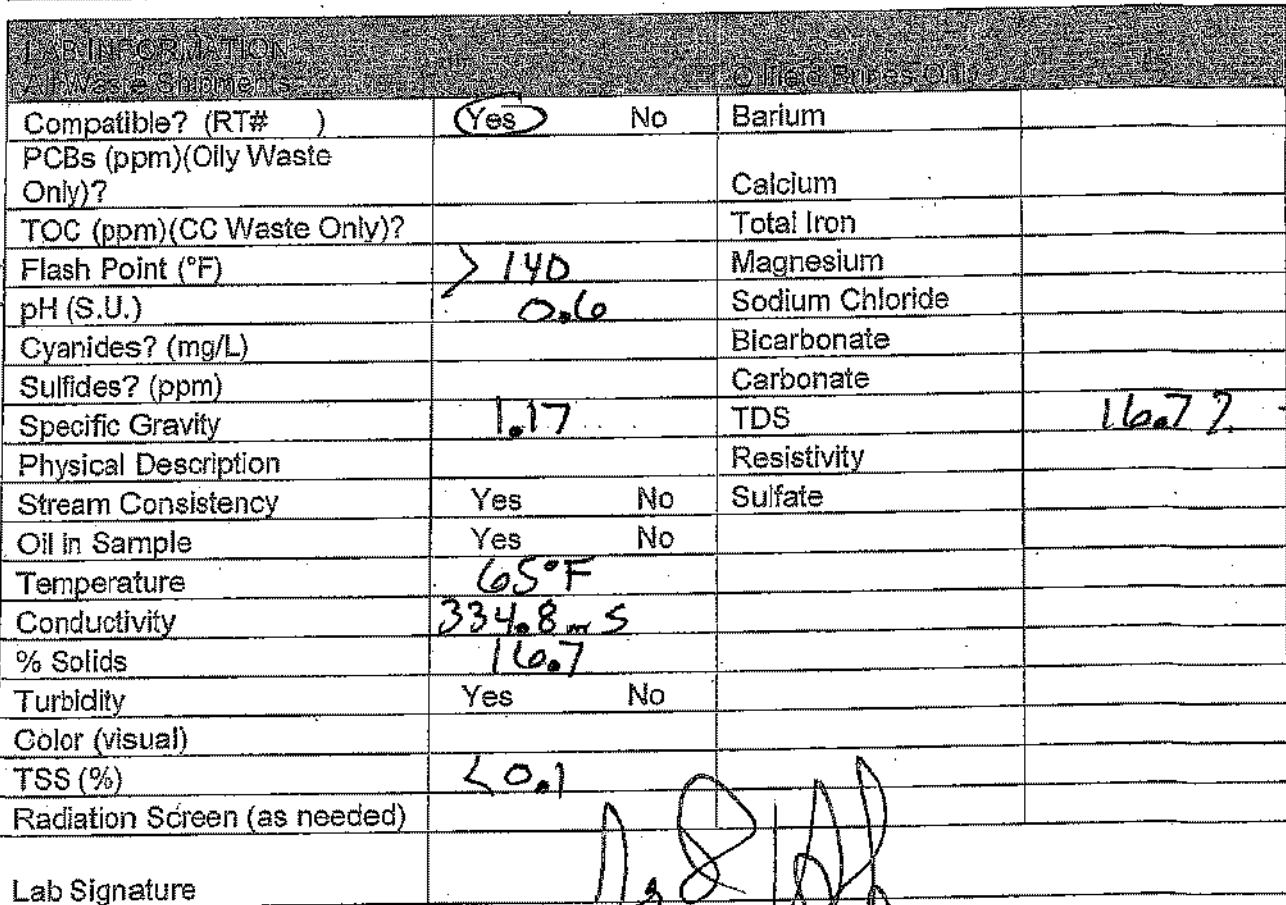 LAB INFORMATION
All Waste Shipments Oilfield Brines Only
Compatible? (RT# ) Yes No Barium
PCBs (ppm)(Oily Waste
Only)? Calcium
TOC (ppm)(CC Waste Only)? Total Iron
Flash Point (°F) > 140 Magnesium
pH (S.U.) 0.6 Sodium Chloride
Cyanides? (mg/L) Bicarbonate
Sulfides? (ppm) Carbonate
Specific Gravity 1.17 TDS 16.7%
Physical Description Resistivity
Stream Consistency Yes No Sulfate
Oil in Sample Yes No
Temperature 65°F
Conductivity 334.8 mS
% Solids 16.7
Turbidity Yes No
Color (visual)
TSS (%) <0.1
Radiation Screen (as needed)
Lab Signature